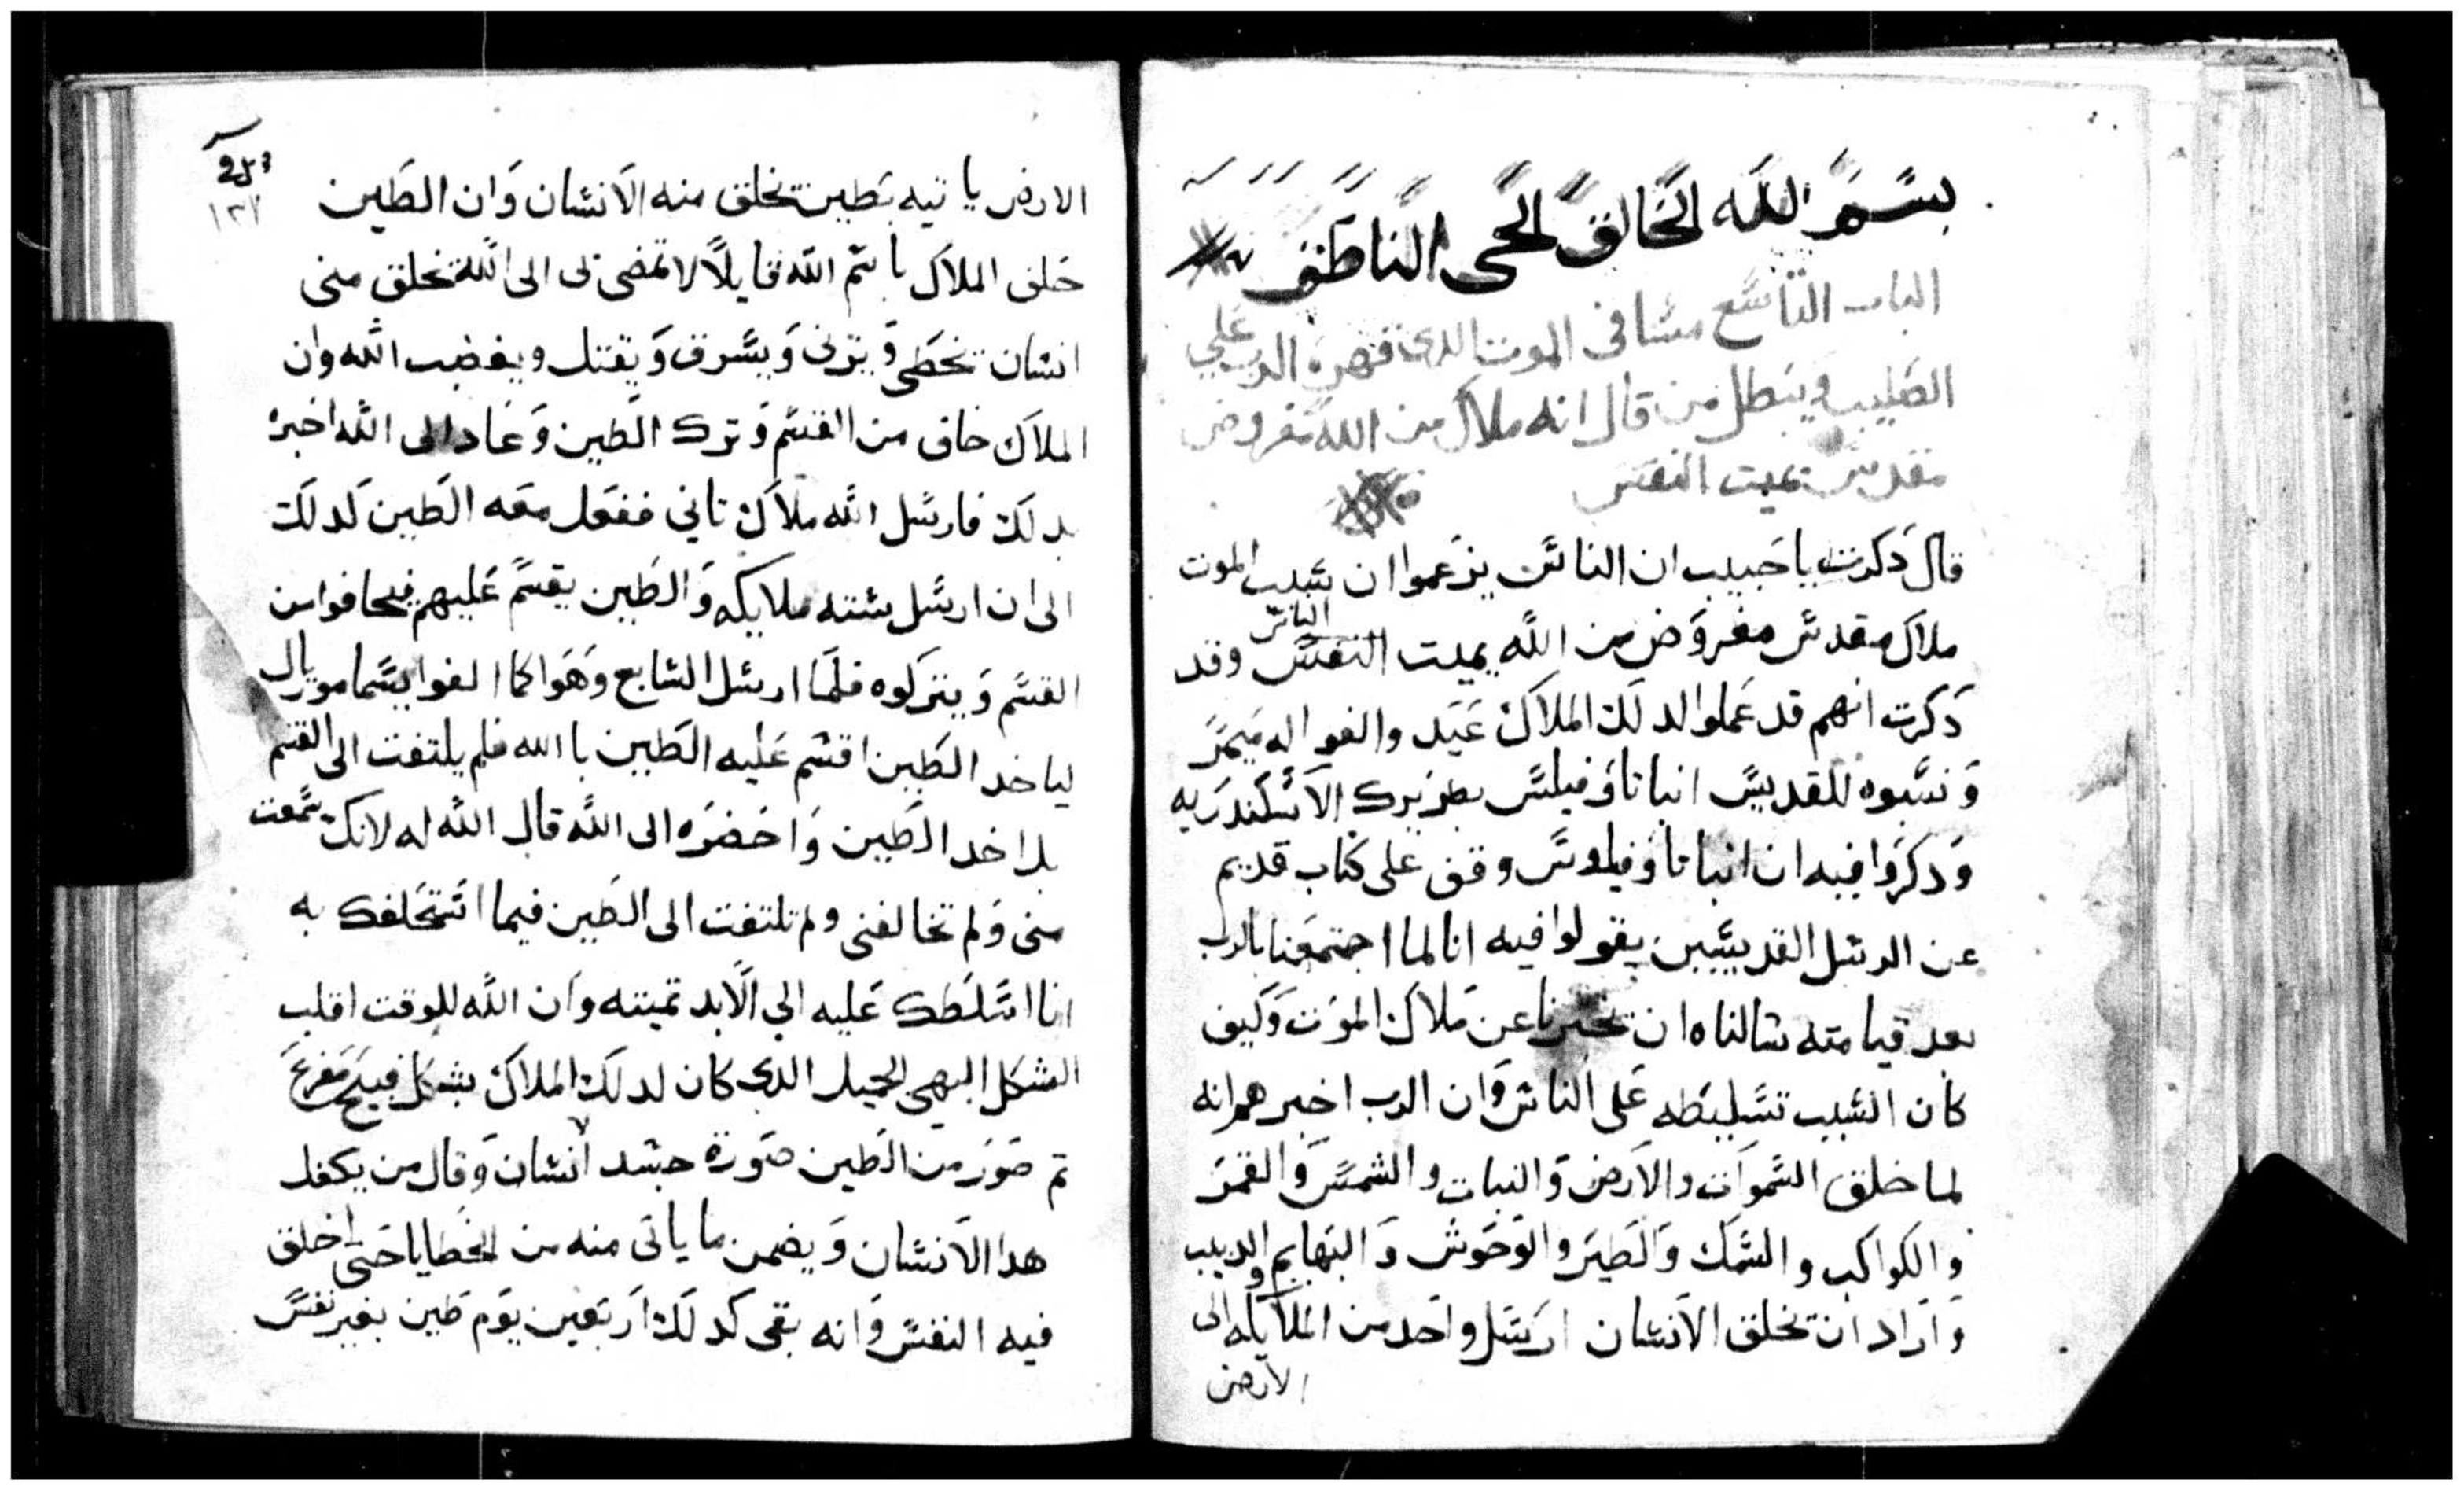 بسم الله الخالق الحى الناطق
الباب التاسع مسافى الموت الدى قهره الرب علي
الصليب ويبطل من قال انه ملاك من الله مفروض
مقدس يميت النفس
قال دكرت يا حبيب ان الناس يزعموا ان سبب الموت
ملاك مقدس مفروض من الله يميت النفس الناس وقد
دكرت انهم قد عملوا لدلك الملاك عيد والفوا له ميمر
ونسبوه للقديس انبا تاوفيلس بطريرك الاسكندريه
ودكروا فيه ان انبا تاوفيلوس وقف على كتاب قديم
عن الرسل القديسين يقولوا فيه انا لما اجتمعنا بالرب
بعد قيامته سالناه ان تخبرنا عن ملاك الموت وكيف
كان السبب تسليطه على الناس وان الرب اخبرهم انه
لما خلق السموات والارض والنبات والشمس والقمر
والكواكب والسمك والطير والوحوش والبهايم والدبيب
واراد ان تخلق الانسان ارسل واحد من الملايكه الى
الارض
الارض ياتيه بطين تخلق منه الانسان وان الطين
حلف الملاك باسم الله قايلا لا تمضى بى الى الله تخلق منى
انسان تخطى ويزنى ويسرق ويقتل ويغضب الله وان
الملاك خاف من القسم وترك الطين وعاد الى الله اخبره
بدلك فارسل الله ملاك تاني ففعل معه الطين كدلك
الى ان ارسل سته ملايكه والطين يقسم عليهم فيخافوا من
القسم ويتركوه فلما ارسل السابع وهوا كما الفوا يسما موريال
لياخد الطين اقسم عليه الطين باالله فلم يلتفت الى القسم
بل اخد الطين واحضره الى الله قال الله له لانك سمعت
منى ولم تخالفنى ولم تلتفت الى الطين فيما استحلفك به
انا اسلطك عليه الي الابد تميته وان الله للوقت اقلب
الشكل البهي الجميل الدى كان لدلك الملاك بشكل قبيح مفزع
تم صور من الطين صورة جسد انسان وقال من يكفل
هدا الانسان ويضمن ما ياتى منه من الخطايا حتى اخلق
فيه النفس وانه بقى كدلك اربعين يوم طين بغير نفس